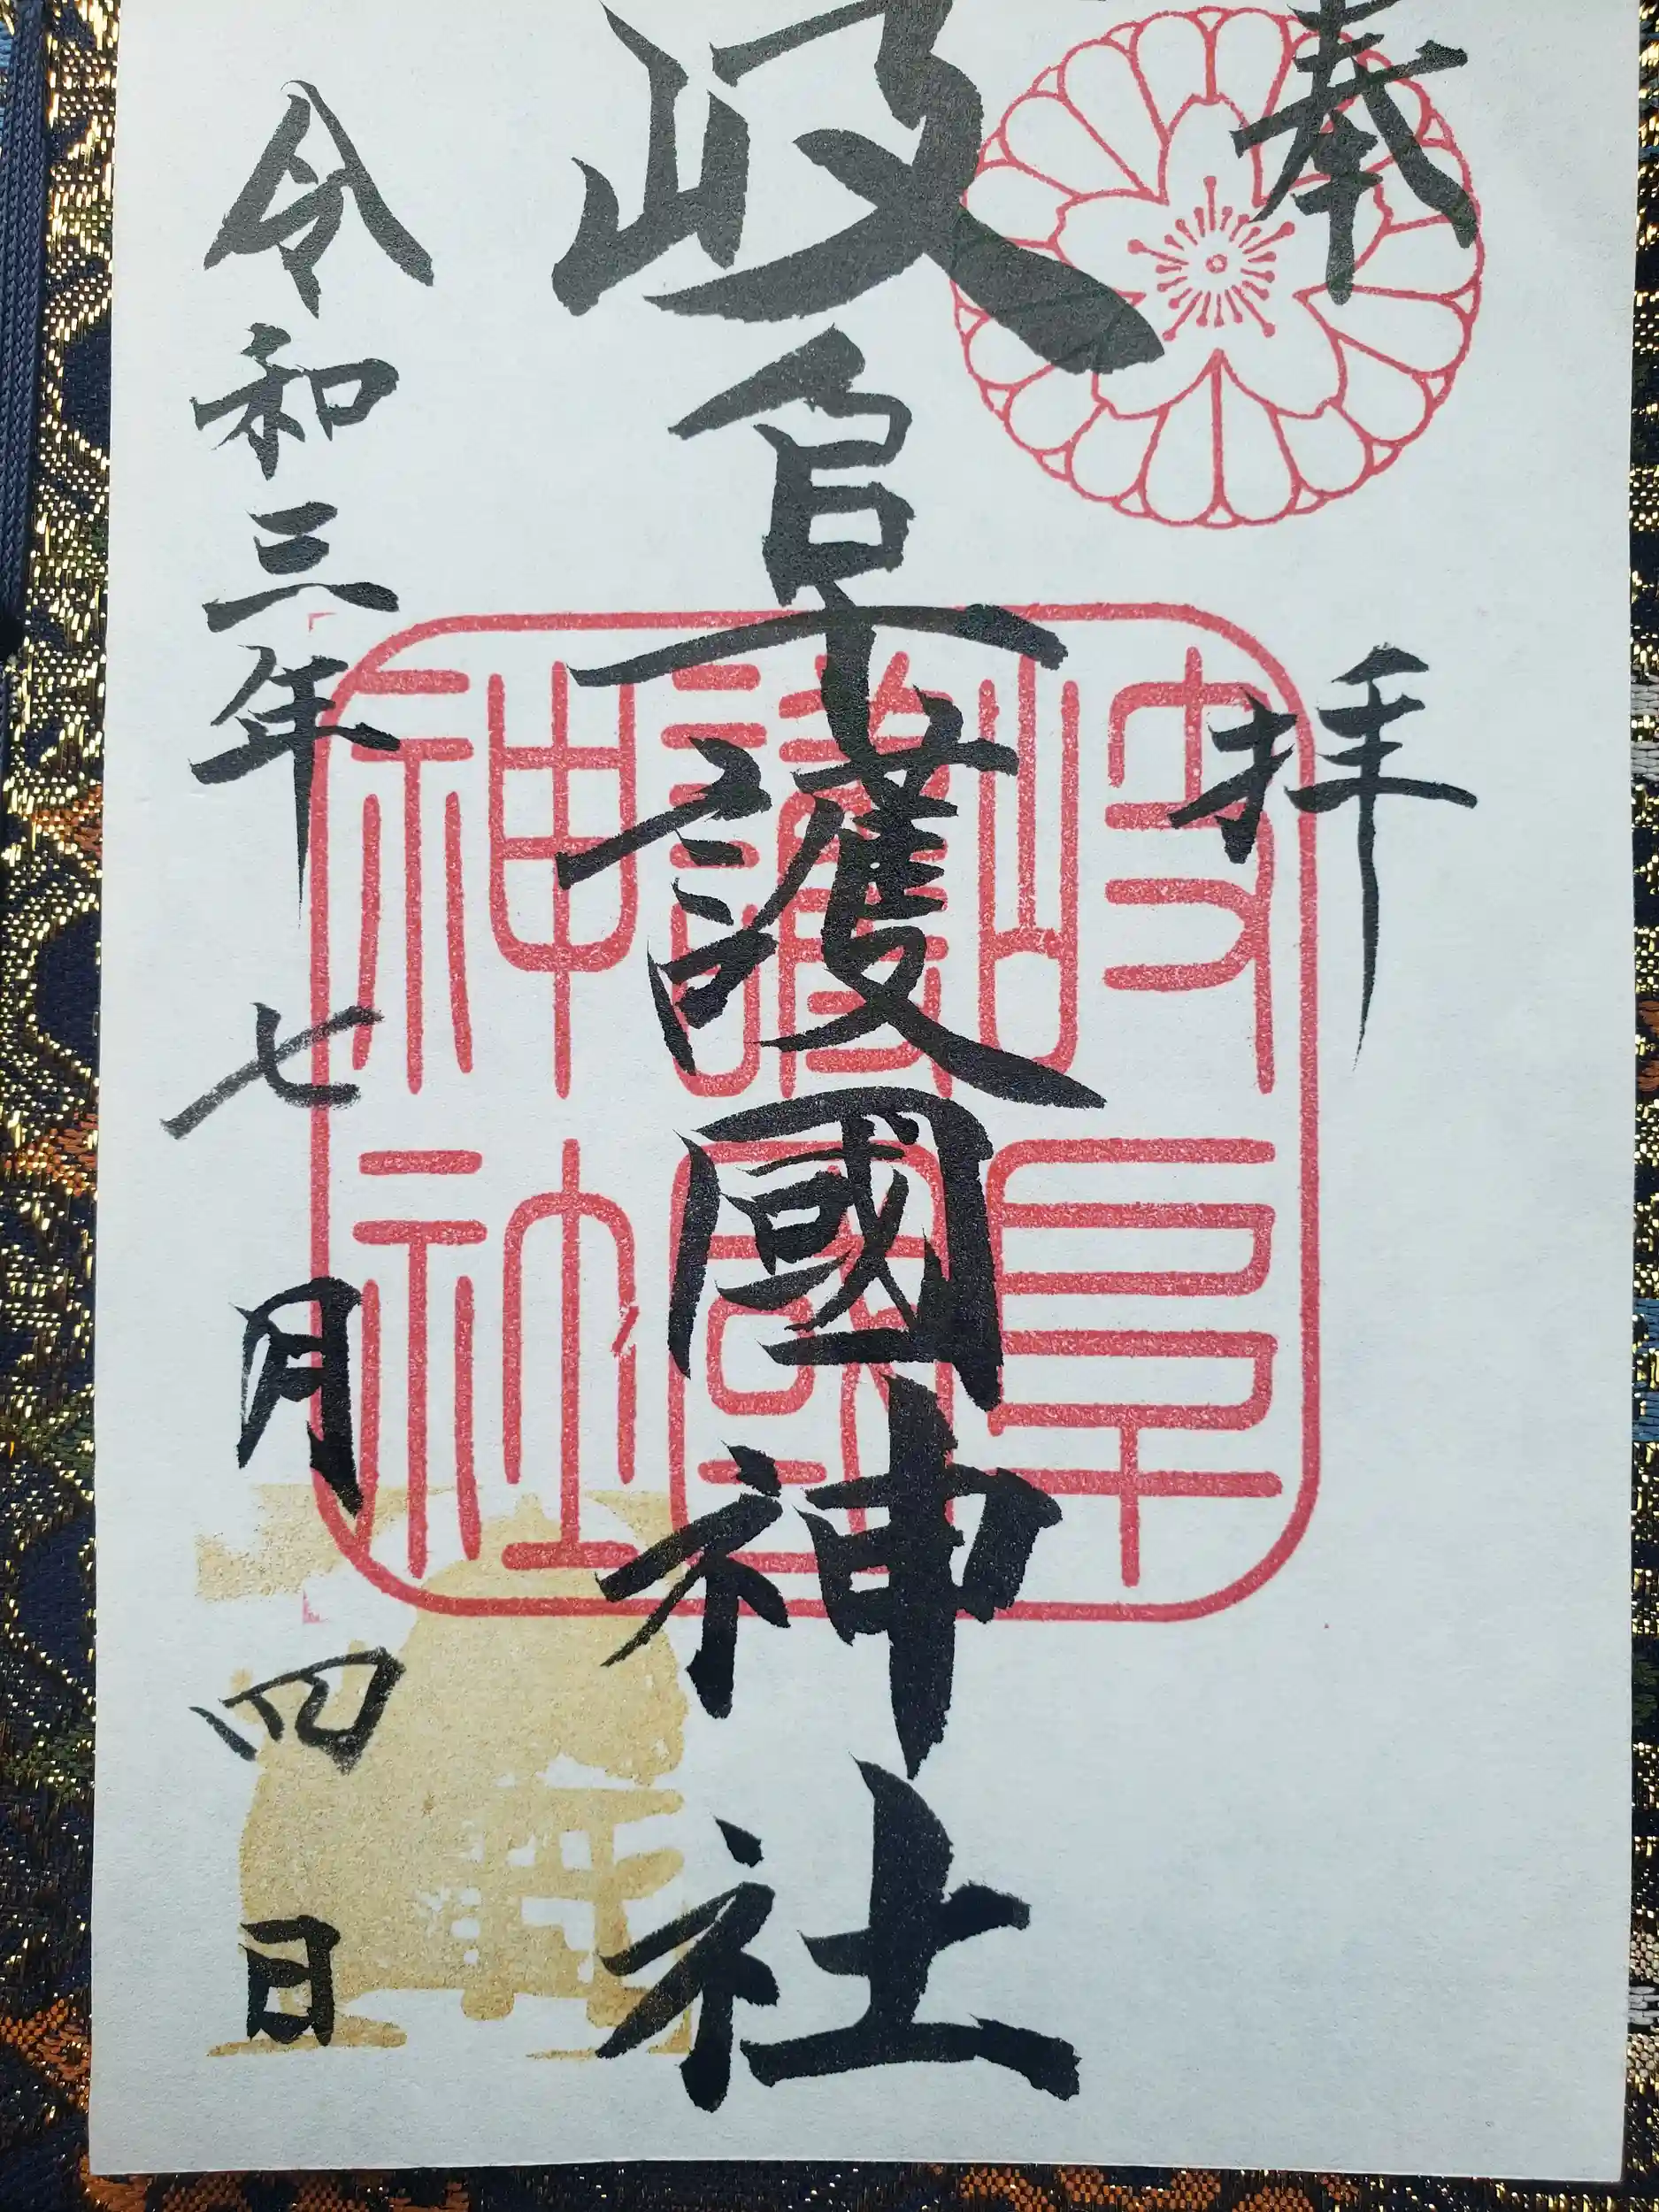 奉拝
岐阜護國神社
岐阜
護國
神社
令和三年七月四日